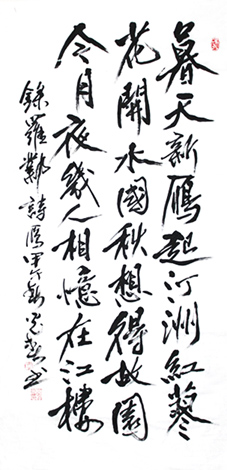 暮天新鴈起汀洲紅蓼
花開水國秋想得故園
今月夜幾人相憶在江樓
錄羅鄴詩鴈甲午書